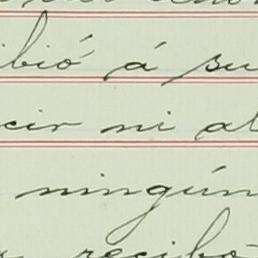 ibió á su
cir ni al
ningún
recibó